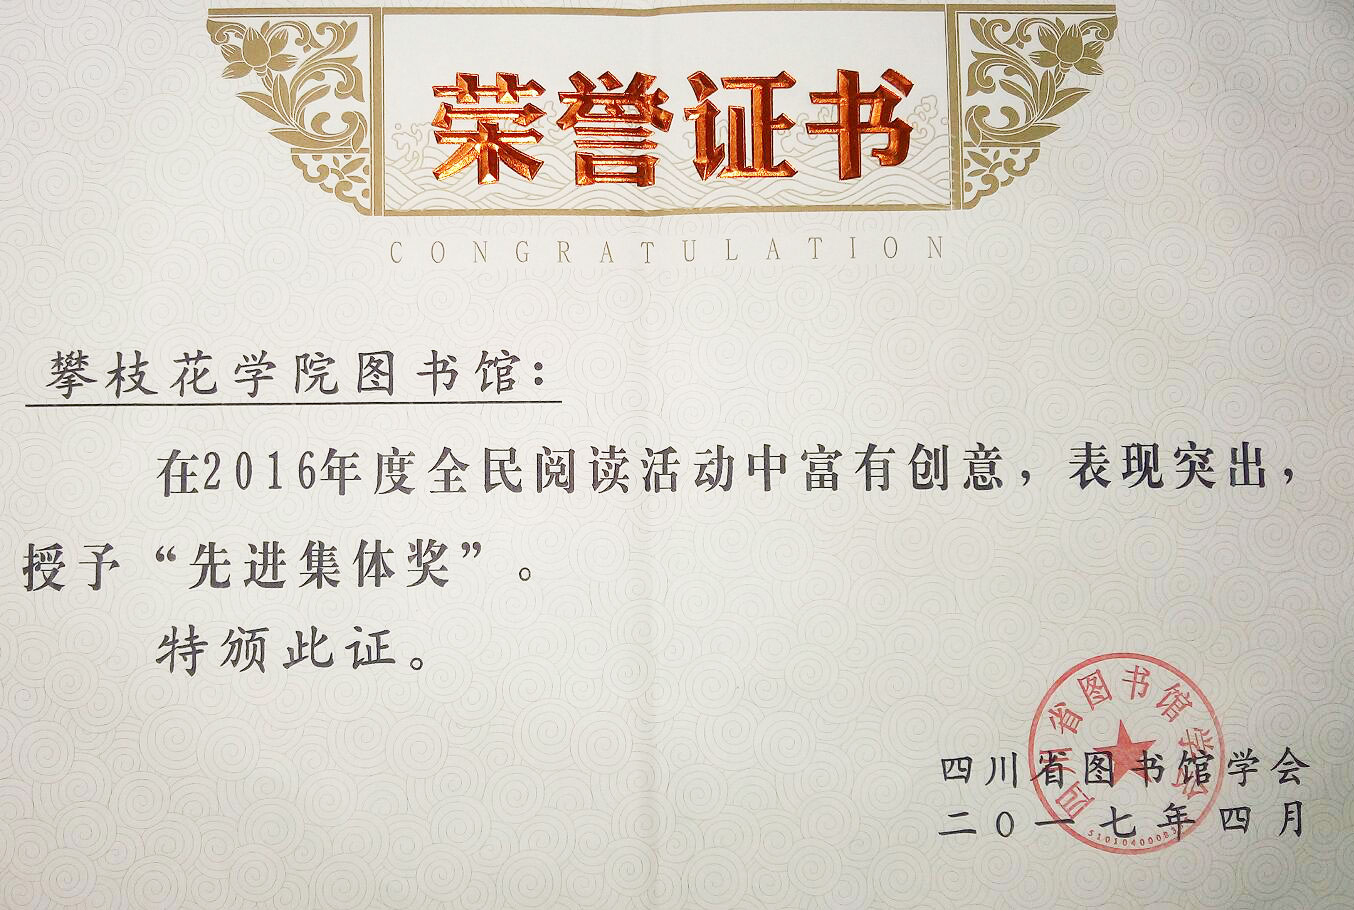 荣誉证书
CONGRATULATION
攀枝花学院图书馆：
在2016年度全民阅读活动中富有创意，表现突出，
授予“先进集体奖”。
特颁此证。
四川省图书馆学会
四川省图书馆学会
二〇一七年四月